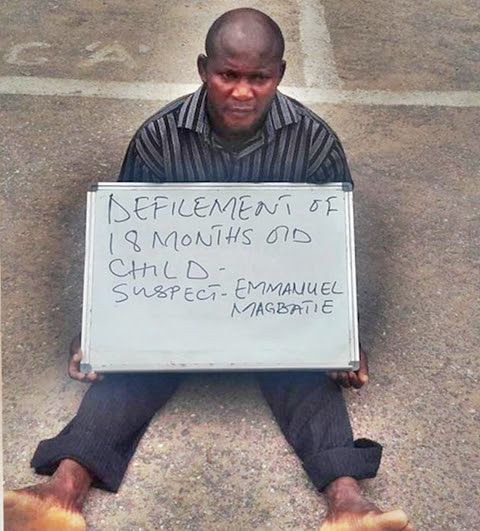 CA
DEFILEMENT OF
18 MONTHS OlD
CHILD -
SUSPECT - EMMANUEL
MAGBATIE